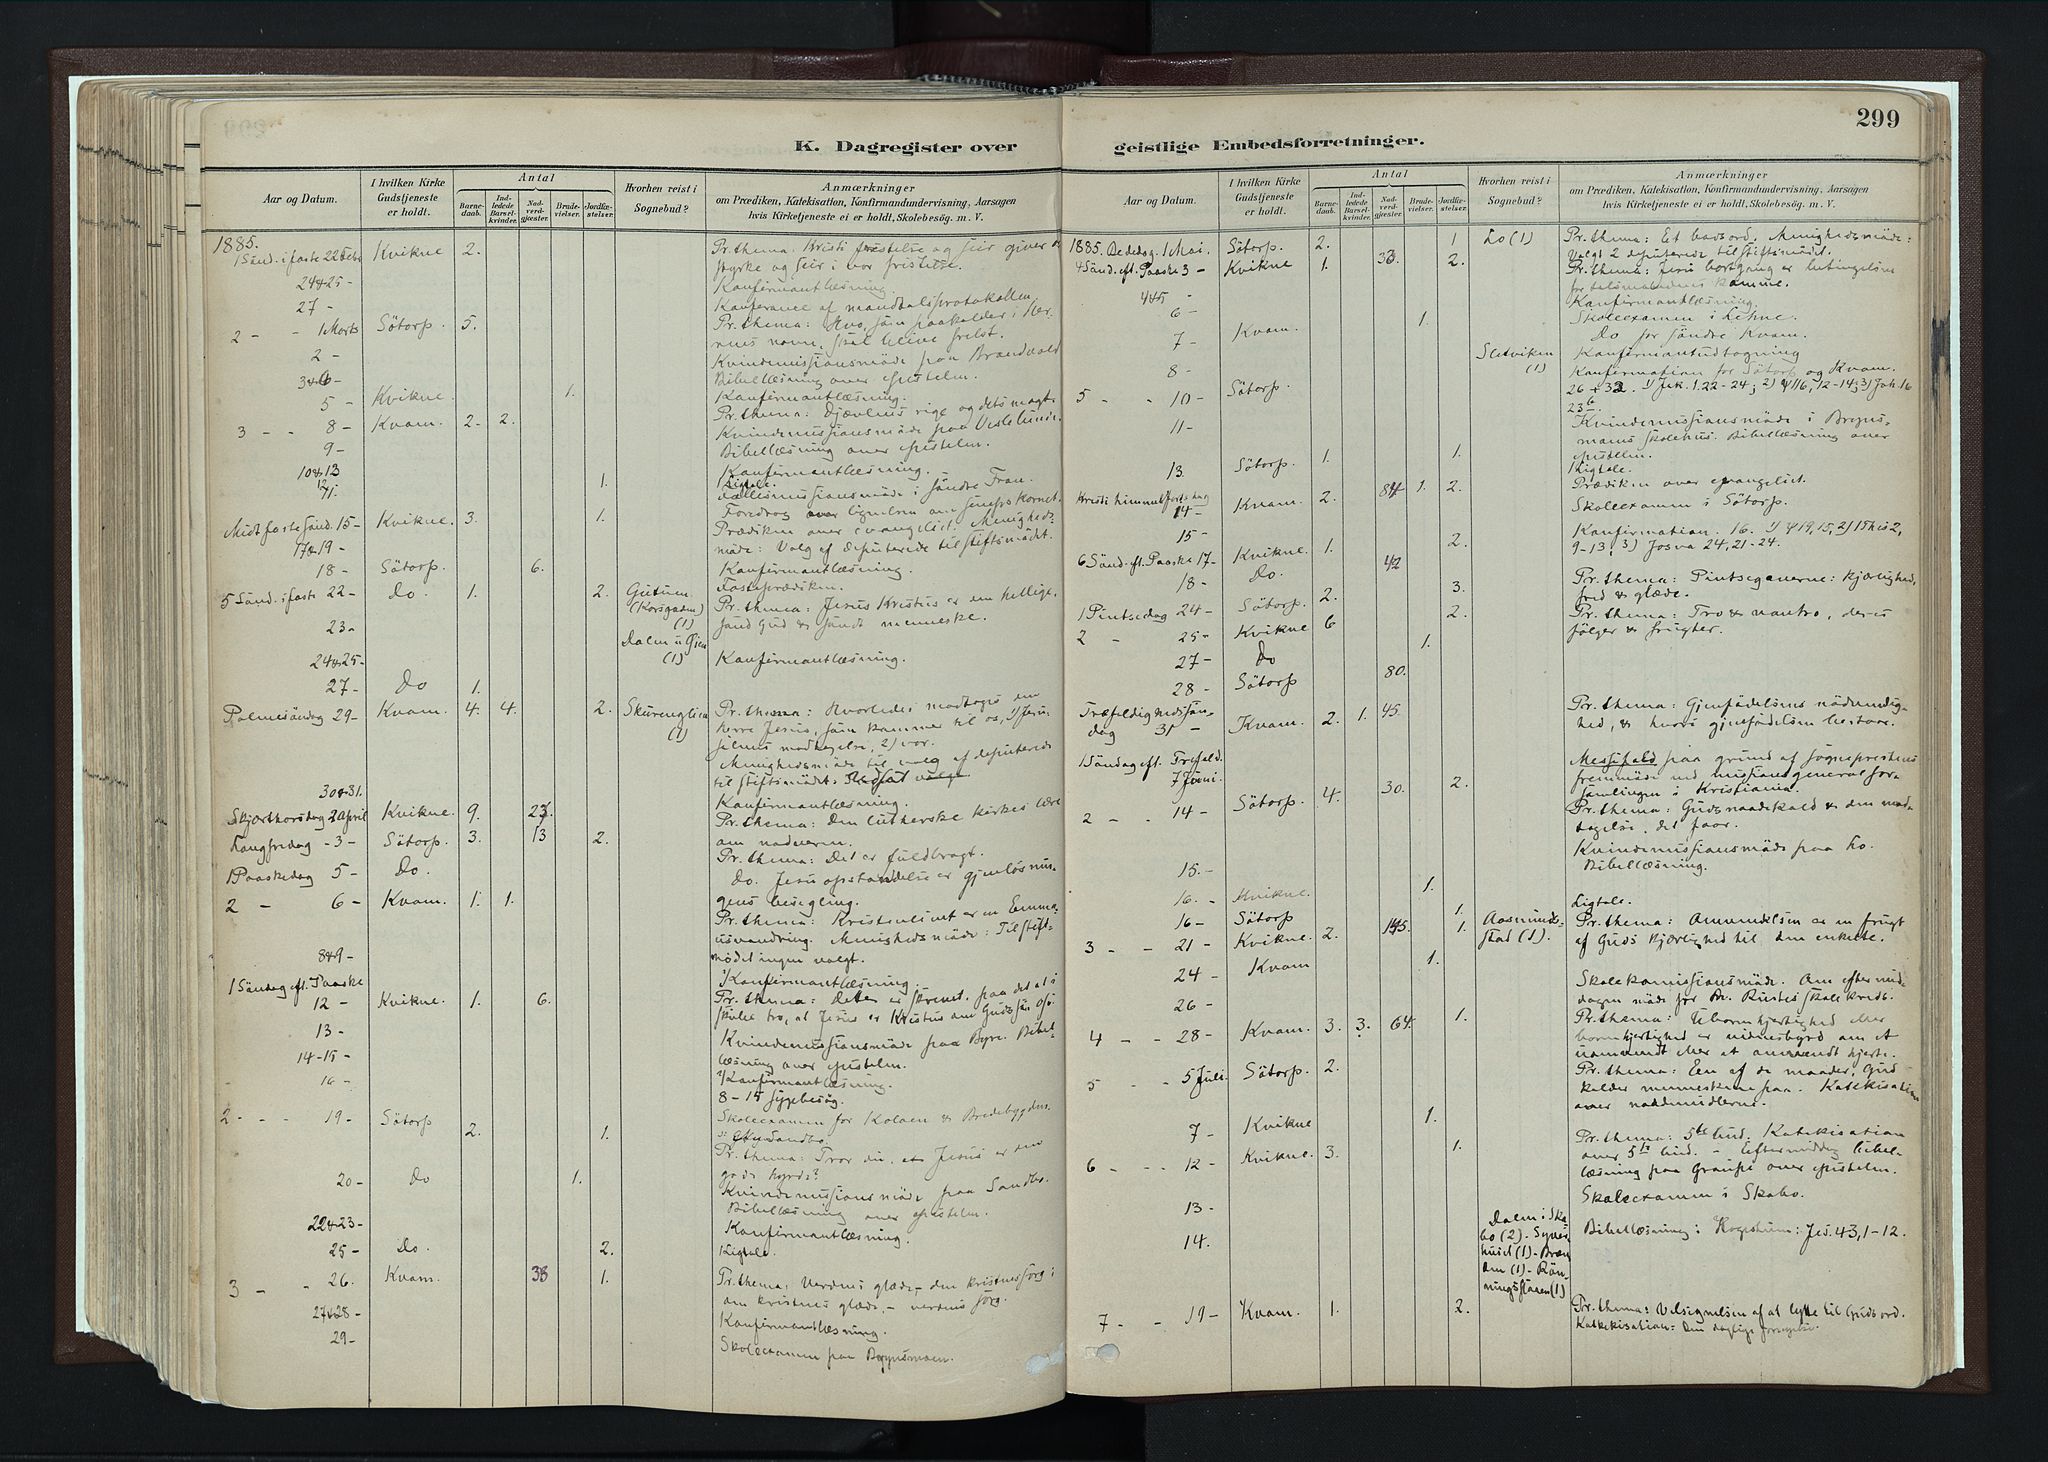 299
K. Dagregister over
Aar og Datum.
I hvilken Kirke Gudstjeneste er holdt.
Antal
Barnedaab.
Indledede Barselkvinder.
Nadverdgjester
Brudevielser.
Jordfæstelser.
Hvorhen reist i Sognebud?
Anmærkninger
om Prædiken, Katekisation, Konfirmandundervisning, Aarsagen
hvis Kirketjeneste ei er holdt, Skolebesøg. m. V.
1885.
1 Sönd. i faste 22 Febr Kvikne 2. Pr. thema: Kristi fristelse og seir giver os
styrke og seir i vor fristelse.
24&25 - Konfirmantlæsning.
27 - Konferance af mandtalsprotokollen.
2 - - 1 Marts Sötorp. 5. Pr. thema: Hvo, som paakalder i Her-
rens navn, skal blive frelst.
2 - Kvindemissionsmöde paa Brandvold
Bibellæsning over epistelen.
3&6 - Konfirmantlæsning.
5 - Kvikne. 1.
3 - - 8 - Kvam. 2. 2. Pr. thema: Djævelens rige og dets magt.
9 - Kvindemissionsmöde paa
Bibellæsning over epistelen.
10&13 Konfirmantlæsning.
12/ 1. Ligtale.
Fællesmissionsmöde i söndre Fron.
Foredrag over lignelsen om senepskornet.
Midfaste Sönd. 15 - Kvikne. 3. 1. Prædiken over evangeliet. Menigheds-
möde: Valg af deputerede til stiftsmödet.
17&19 - Konfirmantlæsning.
18 - Sötorp. 6. Fasteprædiken.
5 Sönd. i faste 22 - Do. 1. 2. (Korsgaden) (1) Pr. thema: Jesus Kristus er den hellige,
sand Gud & sandt menneske.
23 - (1)
24&25 - Konfirmantlæsning.
27 - Do 1.
Palmesöndag 29 - Kvam. 4. 4. 2. (1) Pr. thema: Hvorledes modtages den
Herre Jesus, som kommer til os, 1) Jesu
modtagelse, 2) vor.
Menighedsmöde til valg af deputerede
til stiftsmödet.
30&31. Konfirmantlæsning.
Skjærthorsdag 2 April Kvikne. 9. 23. Pr. thema: Den lutherske kirkes lære
om nadveren.
Langfredag - 3 - Sötorp. 3. 13 2. Pr. thema: Det er fuldbragt.
1 Paaskedag 5 - Do. Do. Jesu opstandelse er gjenlösnin-
gens besegling.
2 - 6 - Kvam. 1. 1. Pr. thema: Kristenlivet er en Emma-
usvandring. Menighedsmöde: Til stift-
mödet ingen valgt.
8&9 - Konfirmantlæsning.
1 Söndag eft. Paaske
12 - Kvikne. 1. 6. Pr. thema: Dette er skrevet, paa det at i
skulle tro, at Jesus er Kristus om Guds sön osv
13 - Kvindemissionsmöde paa Byre. Bibel-
læsning over epistelen.
14-15 - Konfirmantlæsning.
16 - 8-15 sygebesög.
Skoleexamen for Koloen & Bredebygden.
2 - - 19 - Sötorp 2. 1. Pr. thema: Tror du, at Jesus er den
gode hyrde?
20 - Do 1. Kvindemissionsmöde paa Sandbo.
Bibellæsning over epistelen.
22&23 - Konfirmantlæsning.
25 - Do. 2. Ligtale.
3 - - 26. Kvam. 38 1. Pr. thema: Verdens glæde - den kristnes sorg;
om kristnes glæde, - verdens sorg.
27&28 - Konfirmantlæsning.
29 - Skoleexamen paa Brynsmoen.
geistlige Embedsforretninger.
Aar og Datum.
I hvilken Kirke Gudstjeneste er holdt.
Antal
Barnedaab.
Indledede Barselkvinder.
Nadverdgjester
Brudevielser.
Jordfæstelser.
Hvorhen reist i Sognebud?
Anmærkninger
om Prædiken, Katekisation, Konfirmandundervisning, Aarsagen
hvis Kirketjeneste ei er holdt, Skolebesøg. m. V.
1885. Bededag. 1 Mai. Sötorp. 2. 1 Lo (1) Pr. thema: Et bodsord. Menighedsmöde:
Valgt 2 deputerede til stiftsmödet.
4 Sönd. eft. Paaske 3 - Kvikne 1. 33. 2. Pr. thema: Jesu bortgang er betingelsen
for talsmandens komme.
4&5 - Konfirmantlæsning.
6 - Skoleexamen i
7 - Kvam. 1. Do for söndre Kvam.
8 - Sletviken (1) Konfirmantudtagning
5 - - 10 - Sötorp. Konfirmation for Sötorp og Kvam.
26 + 32. 1) Jak. 1.22-24; 2) ψ 116, 12-14; 3) Joh. 16
23 b.
11 - Kvindemissionsmöde i Bryns-
moens skolehus. Bibellæsning over
epistelen.
13. Sötorp. 1. 1. Ligtale.
Kristi himmelfartsdag
14 - Kvam. 2. 84. 1. 2. Prædiken over evangeliet.
15 - Skoleexamen i Sötorp.
6 Sönd. eft. Paaske 17 - Kvikne. 1. 42 2. Konfirmation. 16. 1) ψ 19, 15, 2) 1 Thes 2,
9-13, 3) Josva 24, 21-24.
18 - Do.
1 Pintsedag 24 - Sötorp. 2. 3. Pr. thema: Pintsegaverne: kjærlighed,
fred & glæde.
2 - 25 - Kvikne 6 2. Pr. thema: Tro & vantro, deres
fölger & frugter.
27 - Do 1.
28 - Sötorp 80.
Træfoldighedssön-
dag 31 - Kvam. 2. 1. 45. Pr. thema: Gjenfödelsens nödvendig-
hed, & hvori gjenfödelsen bestaar.
1 Söndag eft. Trefold.
7 Juni. Messefald paa grund af sogneprestens
fremmöde ved missionsgeneralfor-
samlingen i Kristiania.
2 - - 14 - Sötorp. 4. 30. 2. Pr. thema: Guds naadekald & den mod-
tagelse, det faar.
15. - Kvindemissionsmöde paa Lo.
Bibellæsning.
16. - Kvikne. 1.
16 - Sötorp 1. Ligtale.
3 - - 21 - Kvikne. 2. 145. 1. Aasmund-
stad (1). Pr. thema: Omvendelsen er en frugt
af Guds kjærlighed til den enkelte.
24 - Kvam 1.
26 - Skolekomissionsmöde. Om eftermid-
dagen möde for Br. Rustes skolekreds.
4 - - 28 - Kvam. 3. 3. 64. 1. Pr. thema: Ubarmhjertighed eller
barmhjertighed er vidnesbyrd om et
uomvendt eller et omvendt hjerte.
5 - - 5 Juli. Sötorp. 2. Pr. thema: En af de maader, Gud
kalder menneskene paa. Katekisation
over naademidlerne.
7 - Kvikne 1.
6 - - 12 - Kvikne. 3. 1. Pr. thema: 5te bud. Katekisation
over 5te bud. - Eftermiddag bibel-
læsning paa Graupe over epistelen.
13 - Skoleexamen i Skabo.
14. Dalen i Ska-
bo (2).
(1) - Bræn-
den (1) - Rön-
ningsstuen (1) Bibellæsning i : Jes. 43, 1-12.
7 - - 19 - Kvam. 1. 2. Pr. thema: Velsignelsen af at lytte til Guds ord.
Katekisation: Den daglige fornyelse.